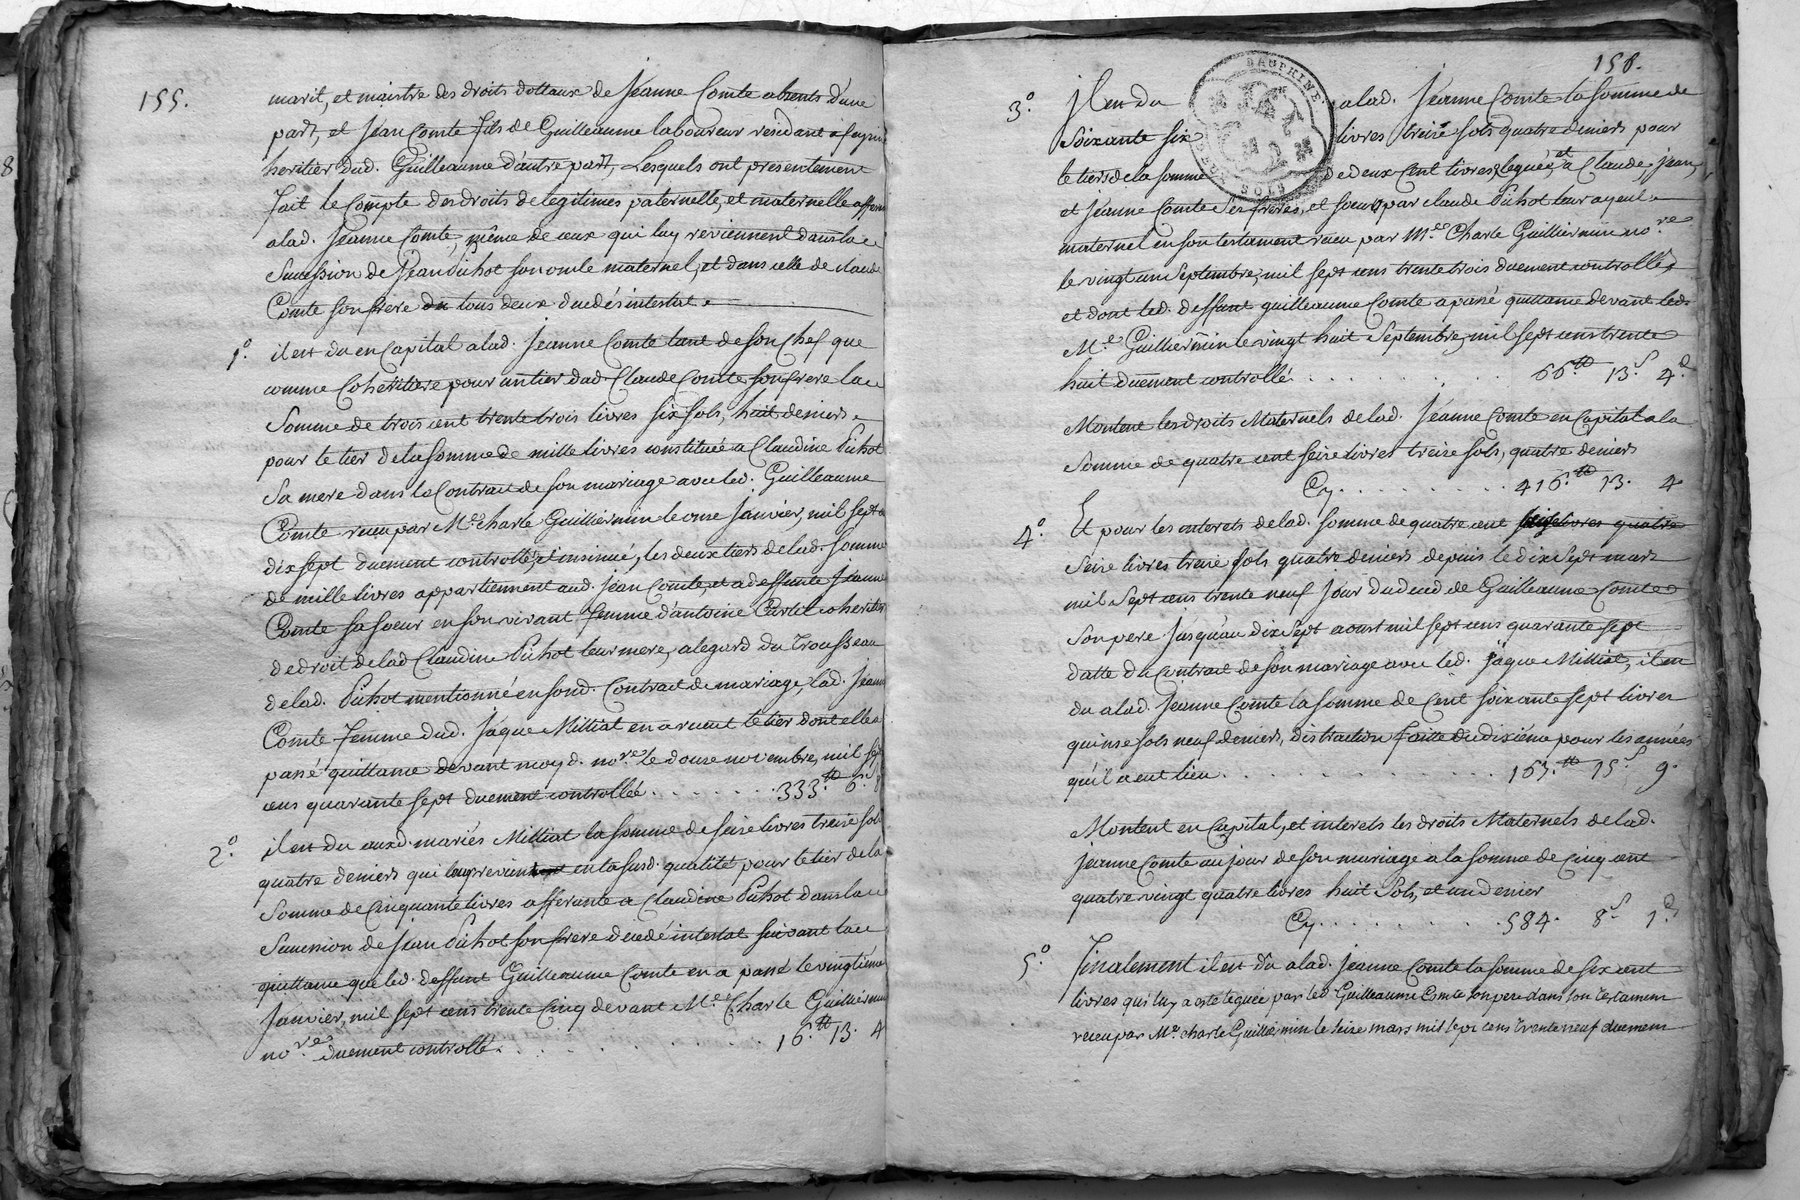 155.
marit, et maistre des droits dottaux de Jeanne Comte absents d'une
part, et Jean Comte fils de Guilleaume laboureur residant a
heritier dud. Guilleaume d'autre part, Lesquels ont presentement
fait le Compte des droits de legitimes paternelle, et maternelle
a lad. Jeanne Comte, même de ceux qui luy reviennent dans la
Sucession de Jean Pichot son oncle maternel, et dans celle de Claude
Comte son frere tous deux decedés intestat.
1.° il est du en Capital a lad. Jeanne Comte tant de son Chef que
comme Coheritiere pour un tier dud. Claude Comte son frere la
Somme de trois cent trente trois livres six sols, huit deniers
pour le tier de la somme de mille livres constituée a Claudine Pichot
Sa mere dans le Contrat de son mariage avec led. Guilleaume
Comte receu par M.e Charle Guilliermin le onze Janvier, mil sept
dix sept duement controllé, et insinué, les deux tiers de lad. somme
de mille livres appartiennent aud. Jean Comte, et a deffunte Jeanne
Comte sa soeur en son vivant femme d'antoine coheritier
de droit de lad Claudine Pichot leur mere, a legard du Trousseau
de lad. Pichot mentionné en sond. Contract de mariage, lad. Jeanne
Comte femme dud. Jaque Milliat en a receu le tier dont elle a
passé quittance devant moy d. no.re le douze novembre, mil sept
cens quarante sept duement controllée . . . . . . . 333.# 6.s 8
2.° il est du auxd. mariés Milliat la somme de seize livres treize sols
quatre deniers qui en la susd. qualité pour le tier de la
Somme de Cinquante livres afferante a Claudine Pichot dans la
Sucession de Jean Pichot son frere decedé intestat suivant la
quittance que led. deffunt Guilleaume Comte en a passé le vingtiéme
Janvier, mil sept cens trente Cinq devant M.e Charle Guilliermin
no.re duement controllé. . . . . . . . . 16.# 13. 4
158.
DAUPHINÉ
SOLS
3.° Il en du a lad. Jeanne Comte la somme de
Soixante six livres treize sols quatre deniers pour
le tiers de la somme de deux Cent livres leguée et a Claude, Jean,
et Jeanne Comte ses freres, et soeur par Claude Pichot leur ayeul
maternel en son testament receu par M.e Charle Guilliermin no.re
le vingt un Septembre, mil sept cens trente trois duement controllé,
et dont led. deffunt guilleaume Comte a passé quittance devant led.
M.e Guilliermin le vingt huit Septembre, mil sept cens trente
huit duement controllé . . . . . . . . 66.# 13.s 4.d
Montent les droits Maternels de lad. Jeanne Comte en Capital a la
Somme de quatre cent seize livres treize sols, quatre deniers
Cy. . . . . . . . . 416.# 13. 4
4.° Et pour les interets de lad. somme de quatre cent livres quatre
Seize livres treize sols quatre deniers depuis le dix Sept mars
mil Sept cens trente neuf Jour du deced de Guilleaume Comte
Son pere Jusqu'au dix sept aoust mil sept cens quarante sept
datte du Contract de son mariage avec led. Jaque Milliat, il en
du a lad. Jeanne Comte la somme de Cent Soixante sept livres
quinse sols neuf deniers, distraction faitte du dixiéme pour les années
qu'il a eut lieu . . . . . . . . . 167.# 15.s 9.
Montent en Capital, et interets les droits Maternels de lad.
Jeanne Comte au jour de son mariage a la somme de Cinq cent
quatre vingt quatre livres huit Sols, et un denier
Cy. . . . . . . . . 584. 8.s 1.d
5.° Finalement il est du a lad. Jeanne Comte la somme de six cent
livres qui luy a esté leguée par led Guilleaume Comte son pere dans son Testament
receu par M.e charle Guilliermin le seize mars mil sept cens Trente neuf duement